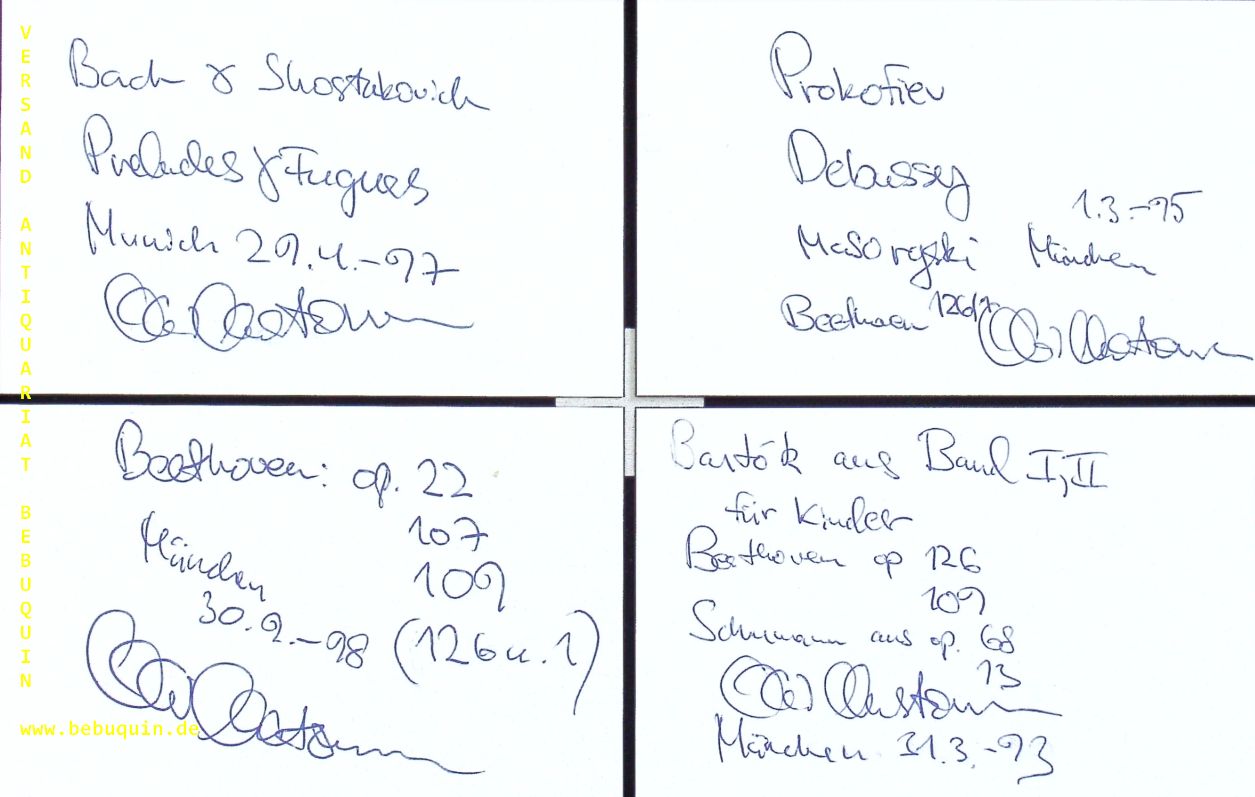 VERSAND ANTIQUARIAT BEBUQUIN
www.bebuquin.de
Bach & Shostakovich
Preludes & Fugues
Munich 29.4.-97
Prokofiev
Debussy
1.3.-95
Mussorgski München
Beethoven 126/1
Beethoven: op. 22
107
München 109
30.9.-98 (126 u. 1)
Bartók aus Band I, II
für Kinder
Beethoven op 126
109
Schumann aus op. 68
13
München 31.3.-93